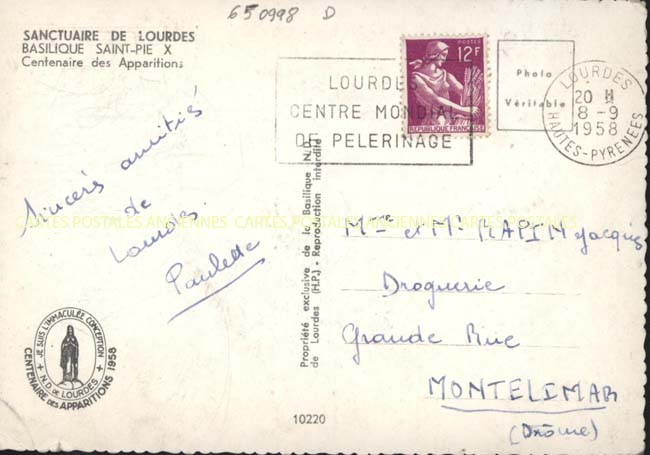 650998 D
SANCTUAIRE DE LOURDES
BASILIQUE SAINT-PIE X
Centenaire des Apparitions
LOURDES
CENTRE MONDIAL
DE PELERINAGE
POSTES
12F
REPUBLIQUE FRANÇAISE
Photo
Véritable
LOURDES
20 H
8 - 9
1958
HAUTES-PYRENEES
Sincères amitiés
de
Lourdes.
Paulette
CARTES POSTALES ANCIENNES CARTES POSTALES ANCIENNES CARTES POSTALES ANCIENNES
Propriété exclusive de la Basilique N.D.
de Lourdes (H.P.) - Reproduction interdite
Mme et Mr RAPIN Jacques
Droguerie
Grande Rue
MONTELIMAR
(Drôme)
JE SUIS L'IMMACULEE CONCEPTION
N.D. DE LOURDES
CENTENAIRE DES APPARITIONS 1958
10220